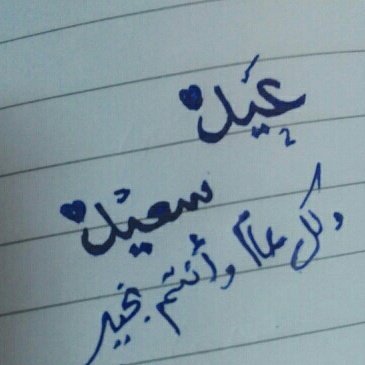 عيد
سعيد
وكل عام وأنتم بخير